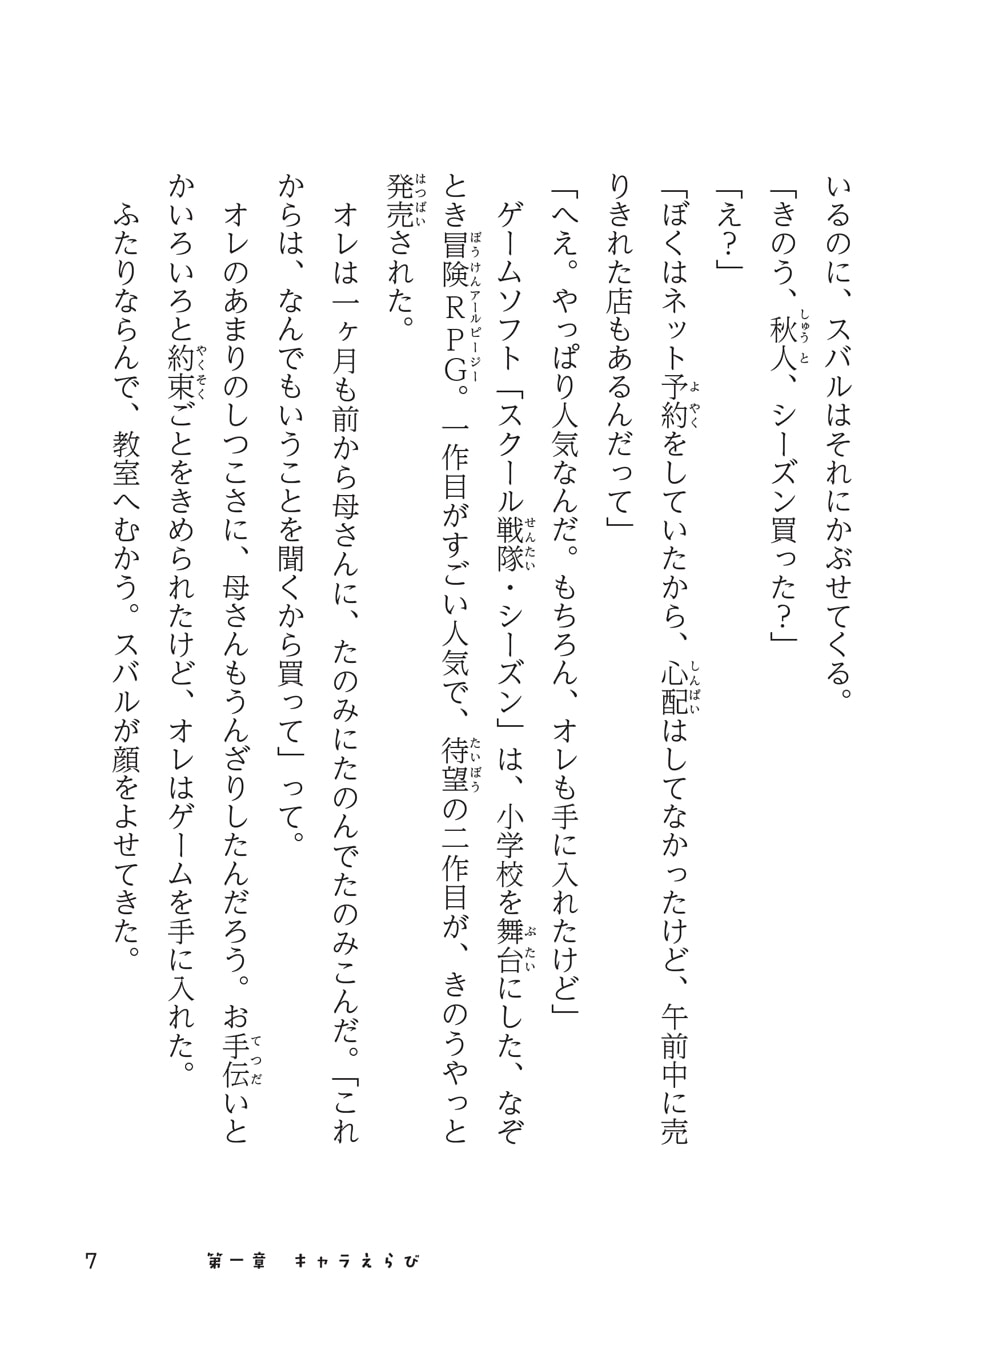 いるのに、スバルはそれにかぶせてくる。
「きのう、秋人、シーズン買った？」
「え？」
「ぼくはネット予約をしていたから、心配はしてなかったけど、午前中に売
りきれた店もあるんだって」
「へえ。やっぱり人気なんだ。もちろん、オレも手に入れたけど」
ゲームソフト「スクール戦隊・シーズン」は、小学校を舞台にした、なぞ
とき冒険ＲＰＧ。一作目がすごい人気で、待望の二作目が、きのうやっと
発売された。
オレは一ヶ月も前から母さんに、たのみにたのんでたのみこんだ。「これ
からは、なんでもいうことを聞くから買って」って。
オレのあまりのしつこさに、母さんもうんざりしたんだろう。お手伝いと
かいろいろと約束ごとをきめられたけど、オレはゲームを手に入れた。
ふたりならんで、教室へむかう。スバルが顔をよせてきた。
7 第一章 キャラえらび